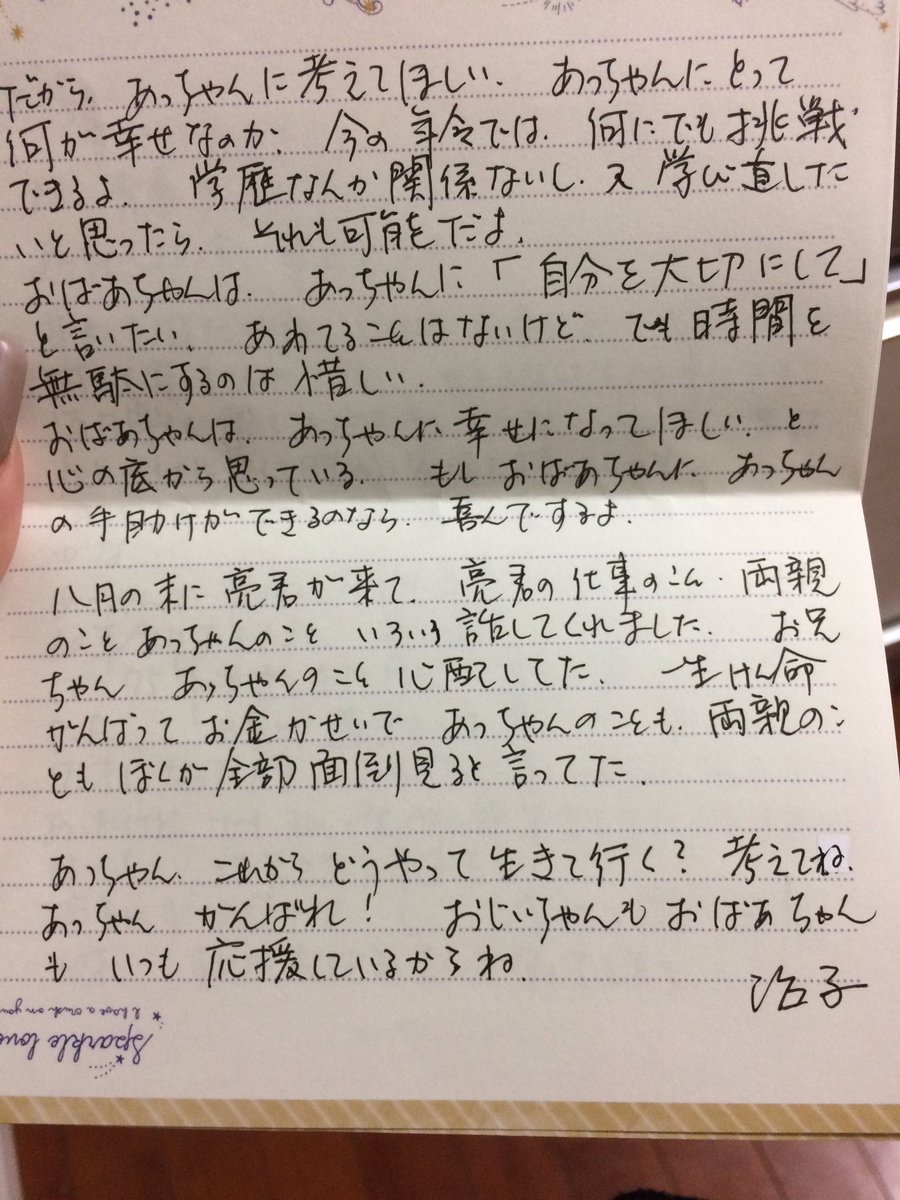 だから、あっちゃんに考えてほしい。 あっちゃんにとって
何が幸せなのか、 今の年令では、何にでも挑戦
できるよ。 学歴なんか関係ないし、又 学び直した
いと思ったら、それも可能だよ。
おばあちゃんは、 あっちゃんに「自分を大切にして」
と言いたい。 あわてることはないけど、でも時間を
無駄にするのは惜しい。
おばあちゃんは、あっちゃんに幸せになってほしい、と
心の底から思っている。 もしおばあちゃんに、あっちゃん
の手助けができるのなら、喜んでするよ。
八月の末に亮君が来て、亮君の仕事のこと、両親
のこと あっちゃんのこと いろいろ話してくれました。 お兄
ちゃん あっちゃんのこと心配してた。 一生けん命
がんばってお金かせいで あっちゃんのことも、両親のこ
ともぼくが全部面倒見ると言ってた。
あっちゃん、これからどうやって生きて行く？考えてね。
あっちゃん がんばれ！ おじいちゃんもおばあちゃん
も いつも応援しているからね。
治子
Sparkle love